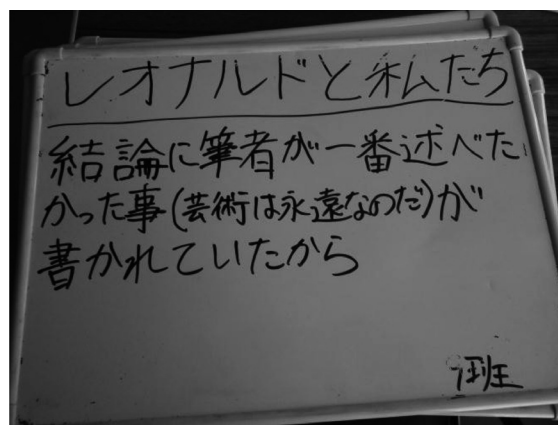 レオナルドと私たち
結論に筆者が一番述べた
かった事(芸術は永遠なのだ)が
書かれていたから
7班